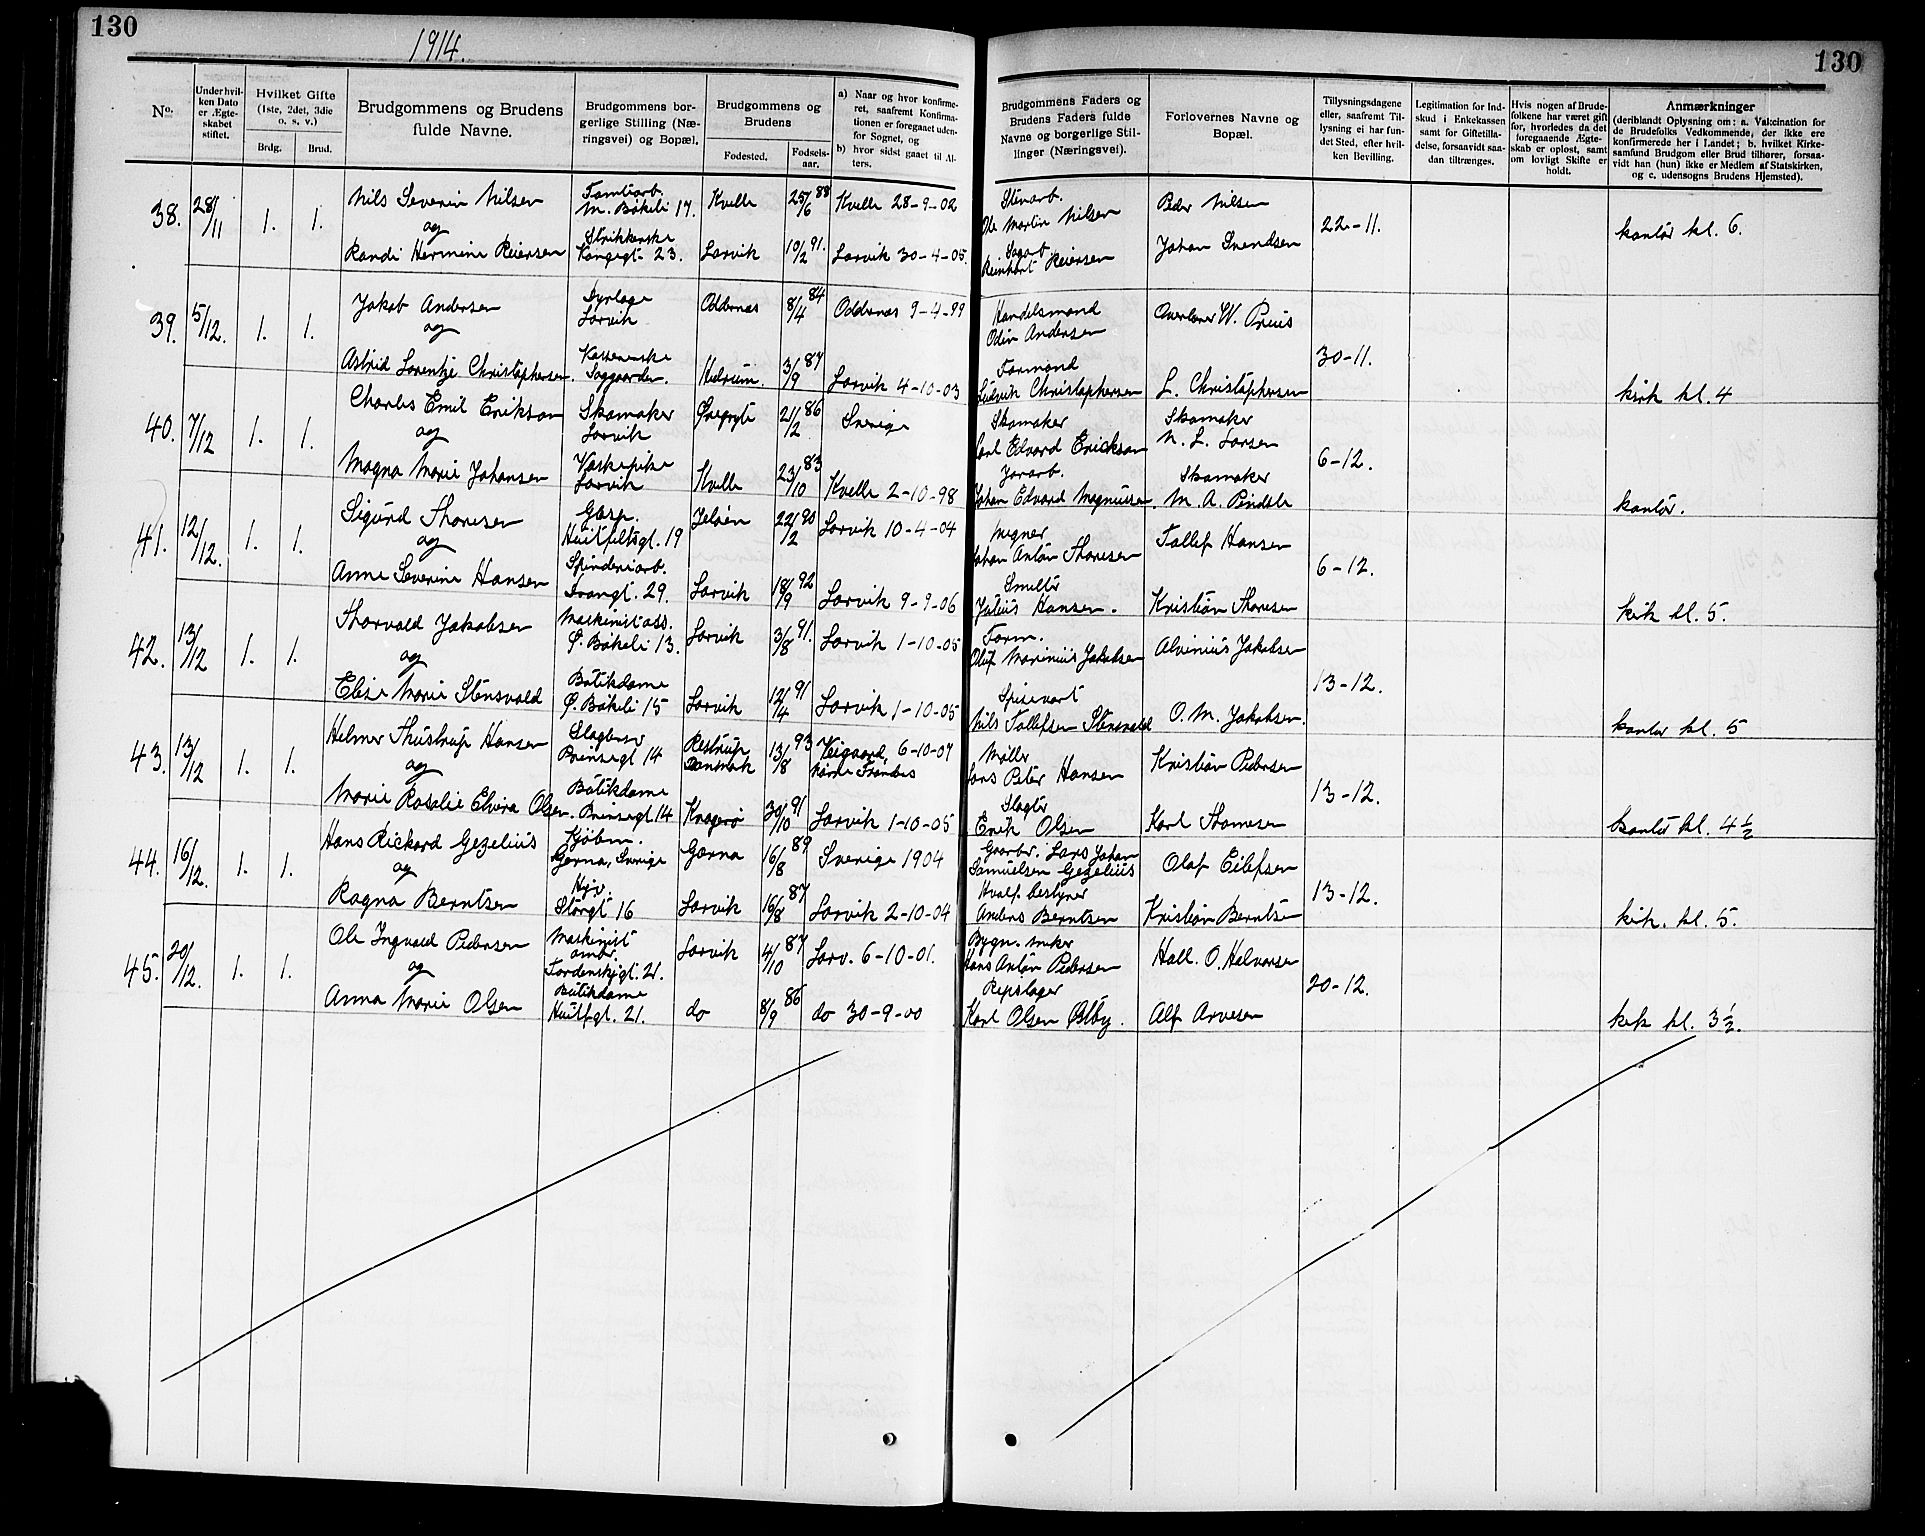 130
1914.
130
No.
Under hvilken Dato er Ægteskabet stiftet.
Hvilket Gifte (1ste, 2det, 3die o. s. v.)
Brdg.
Brud.
Brudgommens og Brudens fulde Navne.
Brudgommens borgerlige Stilling (Næringsvei) og Bopæl.
Brudgommens og Brudens
Fødested.
Fødselsaar.
a) Naar og hvor konfirmeret, saafremt Konfirmationen er foregaaet udenfor Sognet, og
b) hvor sidst gaaet til Alters.
Brudgommens Faders og Brudens Faders fulde Navne og borgerlige Stillinger (Næringsvei).
Forlovernes Navne og Bopæl.
Tillysningsdagene eller, saafremt Tillysning ei har fundet Sted, efter hvilken Bevilling.
Legitimation for Indskud i Enkekassen samt for Giftetilladelse, forsaavidt saadan tiltrænges.
Hvis nogen af Brudefolkene har været gift før, hvorledes da det foregaaende Ægteskab er opløst, samt om lovligt Skifte er holdt.
Anmærkninger
(deriblandt Oplysning om: a. Vakcination for de Brudefolks Vedkommende, der ikke ere konfirmerede her i Landet; b. hvilket Kirkesamfund Brudgom eller Brud tilhører, forsaavidt han (hun) ikke er Medlem af Statskirken, og c. udensogns Brudens Hjemsted).
38. 28/11 1. 1. Nils Severin Nilsen M. Bøkeli 17. Kvelle 25/6 88 Kvelle 28-9-02 Stenarb. Ole Martin Nilsen Peder Nilsen 22-11. kontor kl. 6.
og
Randi Hermine Reiersen Strikkerske Kongegt. 23. Larvik 10/2 91. Larvik 30-4-05. Sagarb. Reinhart Reiersen Johan Svendsen
39. 5/12. 1. 1. Jakob Andersen Larvik Oddernes 8/4 84 Oddernes 9-4-99 Handelsmand Odin Andersen Overlærer W. Prüis 30-11.
og
Astrid Lorentze Christophersen. Kassererske Hedrum. 3/9 87 Larvik 4-10-03 Formand Ludvik Christophersen L. Christophersen kirk kl. 4
40. 7/12 1. 1. Charles Emil Erikson Skomaker Larvik 21/2 86 Sverige Skomaker Carl Edvard Erickson Skomaker N. L. Larsen 6-12.
og
Magna Marie Johansen Vaskepike Larvik Kvelle 23/10 83 Kvelle 2-10-98 Jararb. Johan Edvard Magnussen. Skomaker M. A. Pindsle kontor.
41. 12/12. 1. 1. Sigurd Thoresen Glasp. Huitfeltsgt. 19 Jeløen 22/2 90 Larvik 10-4-04 Johan Anton Thoresen Tallef Hansen 6-12.
og
Anna Severine Hansen Spinderiarb. Trangt. 29. Larvik 18/9 92 Larvik 9-9-06 Smelter Julius Hansen. Kristian Thoresen kirk kl. 5.
42. 13/12 1. 1. Thorvald Jakobsen Maskinistass. Ø. Bøkeli 13. Larvik 3/8 91. Larvik 1-10-05 Form. Oluf Marinius Jakobsen Alvinius Jakobsen 13-12.
og
Elise Marie Stensvold Butikdame Ø. Bøkeli 15 Larvik 12/4 91 Larvik 1-10-05 Spisevart Nils Tallefsen Stensvold O. M. Jakobsen. kontor kl. 5
43. 13/12 1. 1. Helmer Thustrup Hansen Slagter Prinsegt 14 Restrup Danmark 13/8 93 Veigaard, 6-10-07 Møller Lars Peter Hansen Kristian Pedersen 13-12.
og
Marie Rosalie Elvira Olsen. Butikdame Prinsegt. 14 Kragerø 30/10 91 Larvik 1-10-05 Slagter Erik Olsen Karl Thomesen kontor kl. 4 1/2
44. 16/12. 1. 1. Hans Rickard Gezelius Kjøbm. Garna, Sverige Garna 16/8 89 Sverige 1904 Gaarbr. Lars Johan Samuelsen Gezelius Olaf Eilefsen 13-12.
og
Ragna Berntsen Hjv. Storgt 16 Larvik 16/8 87 Larvik 2-10-04 Hvalf. bestyrer Anders Berntsen Kristian Berntsen kirk. kl. 5.
45. 20/12. 1. 1. Ole Ingvald Pedersen Maskinist Tordenskjgt. 21. Larvik 4/10 87 Larv. 6-10-01. Bygn. snker Hans Anton Pedersen Hall. O. Halvorsen 20-12.
og
Anna Marie Olsen Butikdame Huitfgt. 21. do 8/9 86 do 30-9-00 Repslager Karl Olsen Østby. Alf Arvesen kirk kl. 3 1/2.